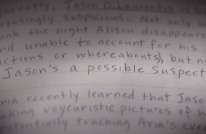 Jason DiLaurentis
increasingly suspicious. Not only
the night Alison disappeare
and unable to account for his
actions or whereabouts), but no
Jason's a possible suspect
ria recently learned that Jaso
king voyeuristic pictures of
tually tracking Aria's eve